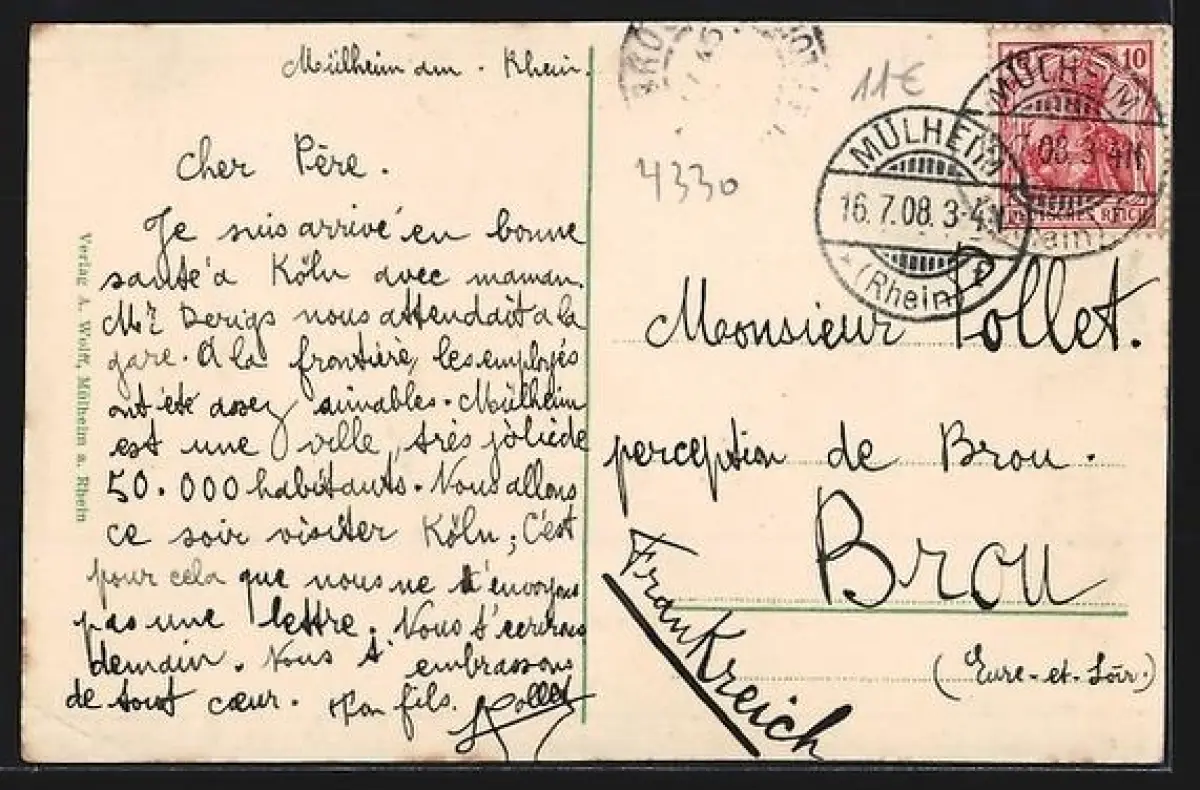 Mülheim am - Rhein.
Cher Père.
Je suis arrivé en bonne
santé à Köln avec maman.
Mr Derigs nous attendait à la
gare. A la frontière, les employés
ont été assez aimables. Mülheim
est une ville, très jolie de
50.000 habitants. Nous allons
ce soir visiter Köln; C'est
pour cela que nous ne t'envoyons
pas une lettre. Nous t'écrirons
demain. Nous t'embrassons
de tout cœur. Ton fils.
Pollet
Verlag A. Wolff, Mülheim a. Rhein
11€
4330
BRO
10
DEUTSCHES REICH
MÜLHEIM
08.3-4N
(Rhein)
MÜLHEIM
16.7.08.3-4N
(Rhein) f
Monsieur Pollet.
perception de Brou.
Brou
(Eure-et-Loir.)
FranKreich